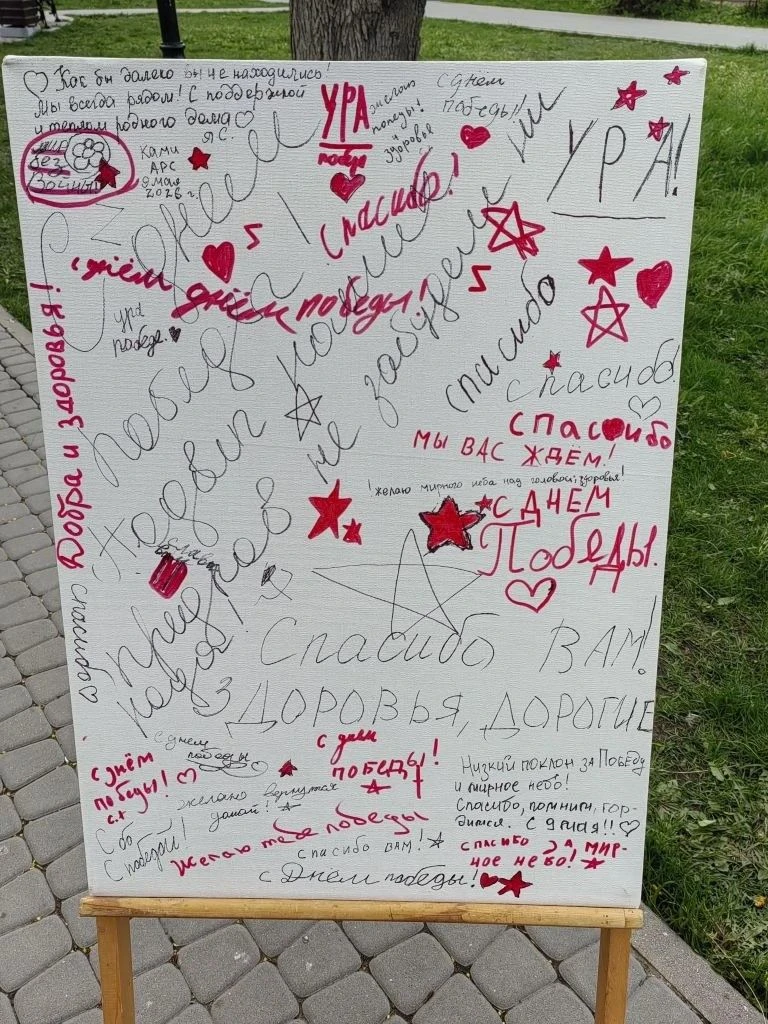 ♡ Как бы далеко бы не находились!
Мы всегда рядом! С поддержкой
и теплом родного дома ♡
ЯС.
мир
без
войны
КАМИ
АРС
9 мая
2026 г.
УРА
победе
желаю
победы!
и
здоровье
с днем
победы!!
УРА!
Спасибо!
С Днем
Победы!
с днём днём победы!
ура
победе.
Подвиг наших
предков не забудем
никогда!
Добра и здоровья!
спасибо
спасибо
спасибо!
спасибо
МЫ ВАС ЖДЁМ!
! желаю мирного неба над головой, здоровья!
С ДНЕМ
ПобеДЫ.
Слава
Спасибо ВАМ!
ЗДОРОВЬЯ, ДОРОГИЕ
с днём
победы!
с.х
с днем
победы
с дем
ПОБЕДЫ!
желаю вернутся
домой!
С победой!
Желаю тебе победы
спасибо ВАМ!
с Днём победы!
Низкий поклон за Победу
и мирное небо!
Спасибо, помним, гор-
димся. С 9 мая!! ♡
спасибо за, мир-
ное небо!